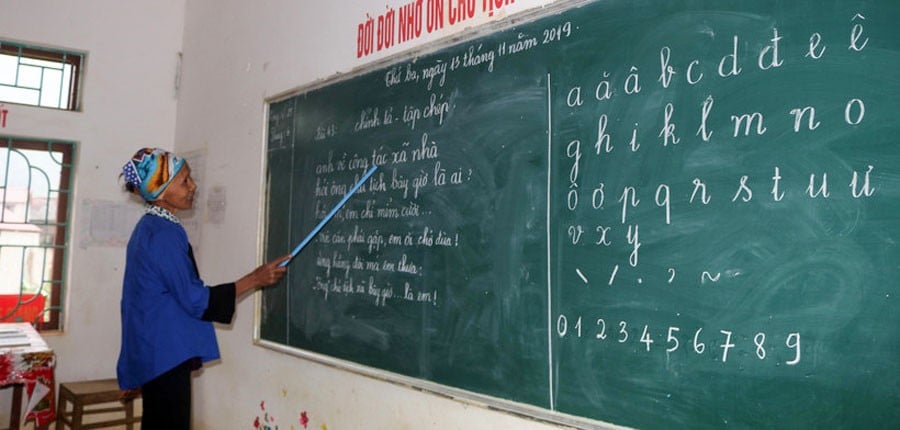 ĐỜI ĐỜI NHỚ ƠN CHỦ TỊCH
Thứ ba, ngày 13 tháng 11 năm 2019.
Bài 43: chính tả - tập chép.
anh về công tác xã nhà
hỏi ông chủ tịch bây giờ là ai?
em chỉ mỉm cười...
cần phải gặp, em ơi chớ đùa!
ửng hồng đôi má em thưa:
- "Ông" chủ tịch xã bây giờ... là em!
a ă â b c d đ e ê
g h i k l m n o
ô ơ p q r s t u ư
v x y
\ / . ? ~
0 1 2 3 4 5 6 7 8 9